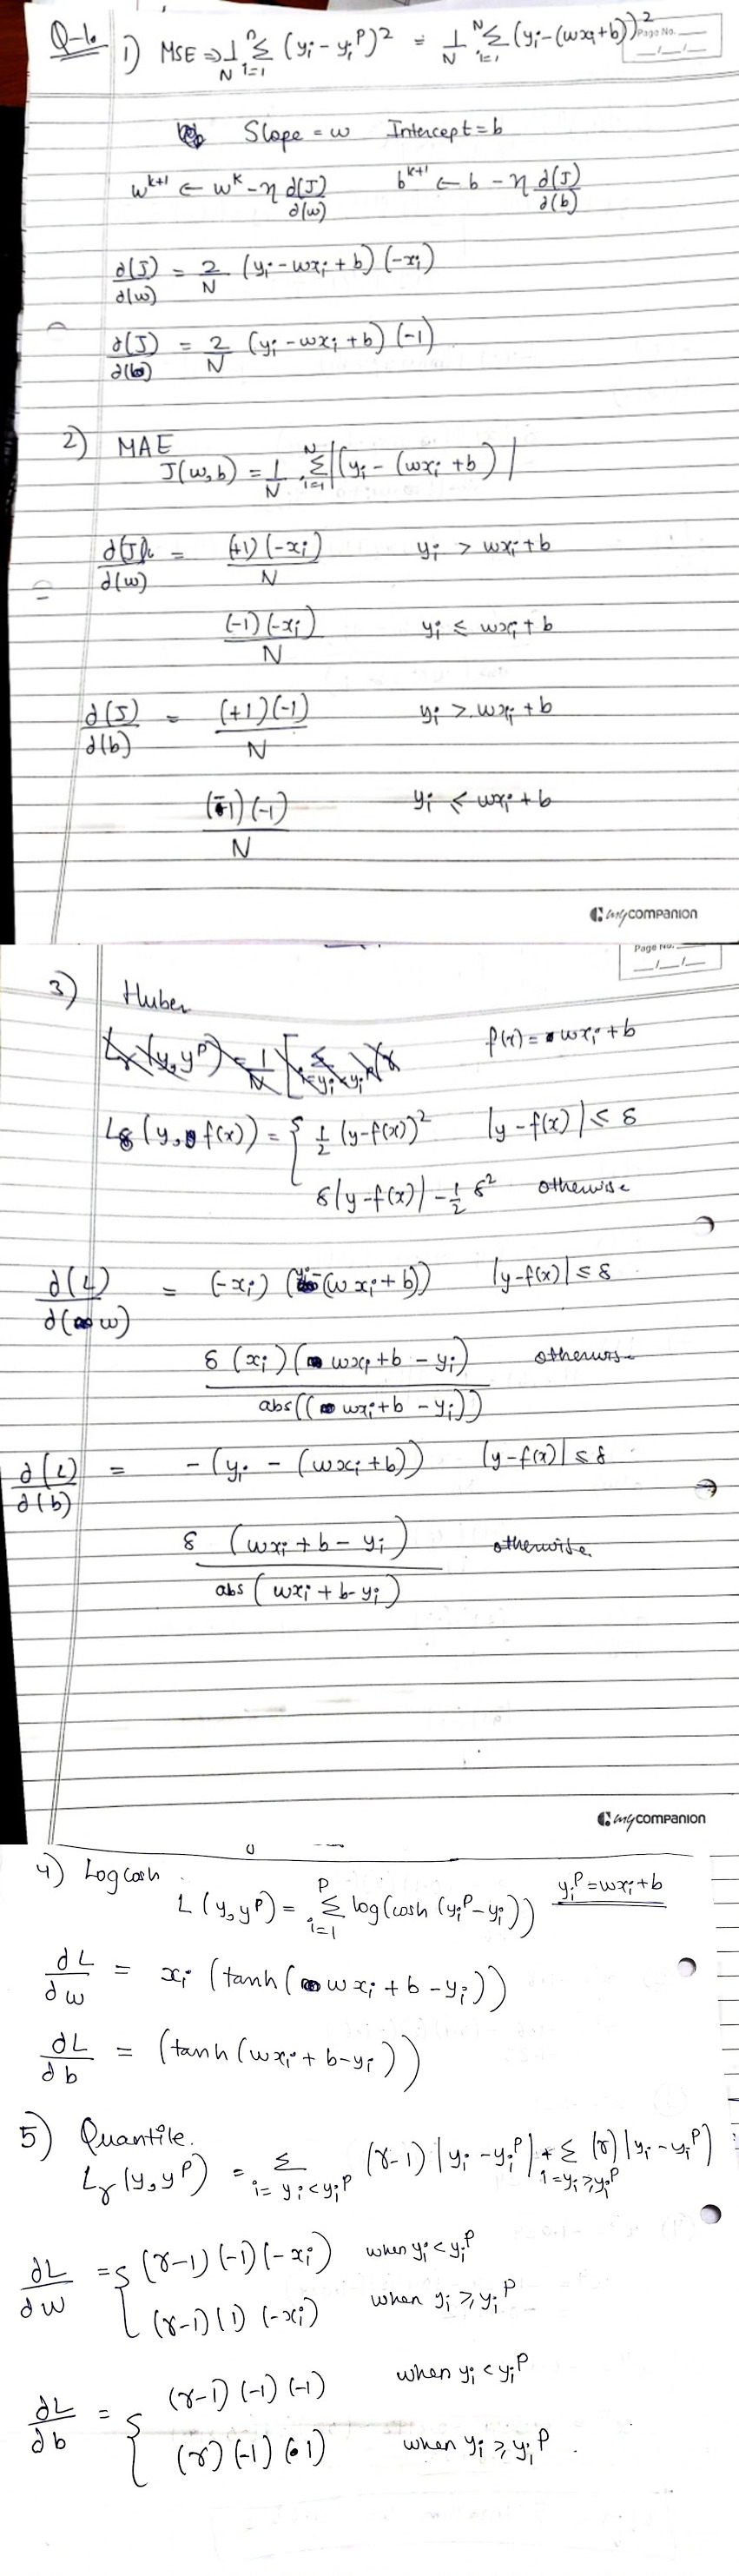 Q-1. 1) MSE ⇒ 1/N Σ_{i=1}^{n} (yi - yi^p)^2 = 1/N Σ_{i=1}^{N} (yi - (wxi+b))^2
Page No.
Slope = w Intercept = b
w^{k+1} ← w^k - η ∂(J)/∂(w) b^{k+1} ← b - η ∂(J)/∂(b)
∂(J)/∂(w) = 2/N (yi - wxi + b) (-xi)
∂(J)/∂(b) = 2/N (yi - wxi + b) (-1)
2) MAE
J(w,b) = 1/N Σ_{i=1}^{N} |(yi - (wxi + b)|
∂(J)/∂(w) = (+1)(-xi)/N yi > wxi + b
(-1)(-xi)/N yi ≤ wxi + b
∂(J)/∂(b) = (+1)(-1)/N yi > wxi + b
(-1)(-1)/N yi ≤ wxi + b
mycompanion
Page No.
3) Huber
f(x) = wxi + b
Lδ (y, f(x)) = { 1/2 (y-f(x))^2 |y - f(x)| ≤ δ
δ|y-f(x)| - 1/2 δ^2 otherwise
∂(L)/∂(w) = (-xi) (yi - (wxi + b)) |y-f(x)| ≤ δ
δ (xi) (wxi + b - yi)/abs((wxi + b - yi)) otherwise
∂(L)/∂(b) = -(yi - (wxi + b)) |y-f(x)| ≤ δ
δ (wxi + b - yi)/abs (wxi + b - yi) otherwise.
mycompanion
4) Logcosh
L (y, y^p) = Σ_{i=1}^{p} log(cosh (yi^p - yi)) yi^p = wxi + b
dL/dw = xi (tanh (wxi + b - yi))
∂L/∂b = (tanh (wxi + b - yi))
5) Quantile.
Lγ (y, y^p) = Σ_{i = yi < yi^p} (γ-1) |yi - yi^p| + Σ_{i = yi ≥ yi^p} (γ) |yi - yi^p|
∂L/∂w = { (γ-1) (-1) (-xi) when yi < yi^p
(γ-1) (1) (-xi) when yi ≥ yi^p
∂L/∂b = { (γ-1) (-1) (-1) when yi < yi^p
(γ) (-1) (1) when yi ≥ yi^p.